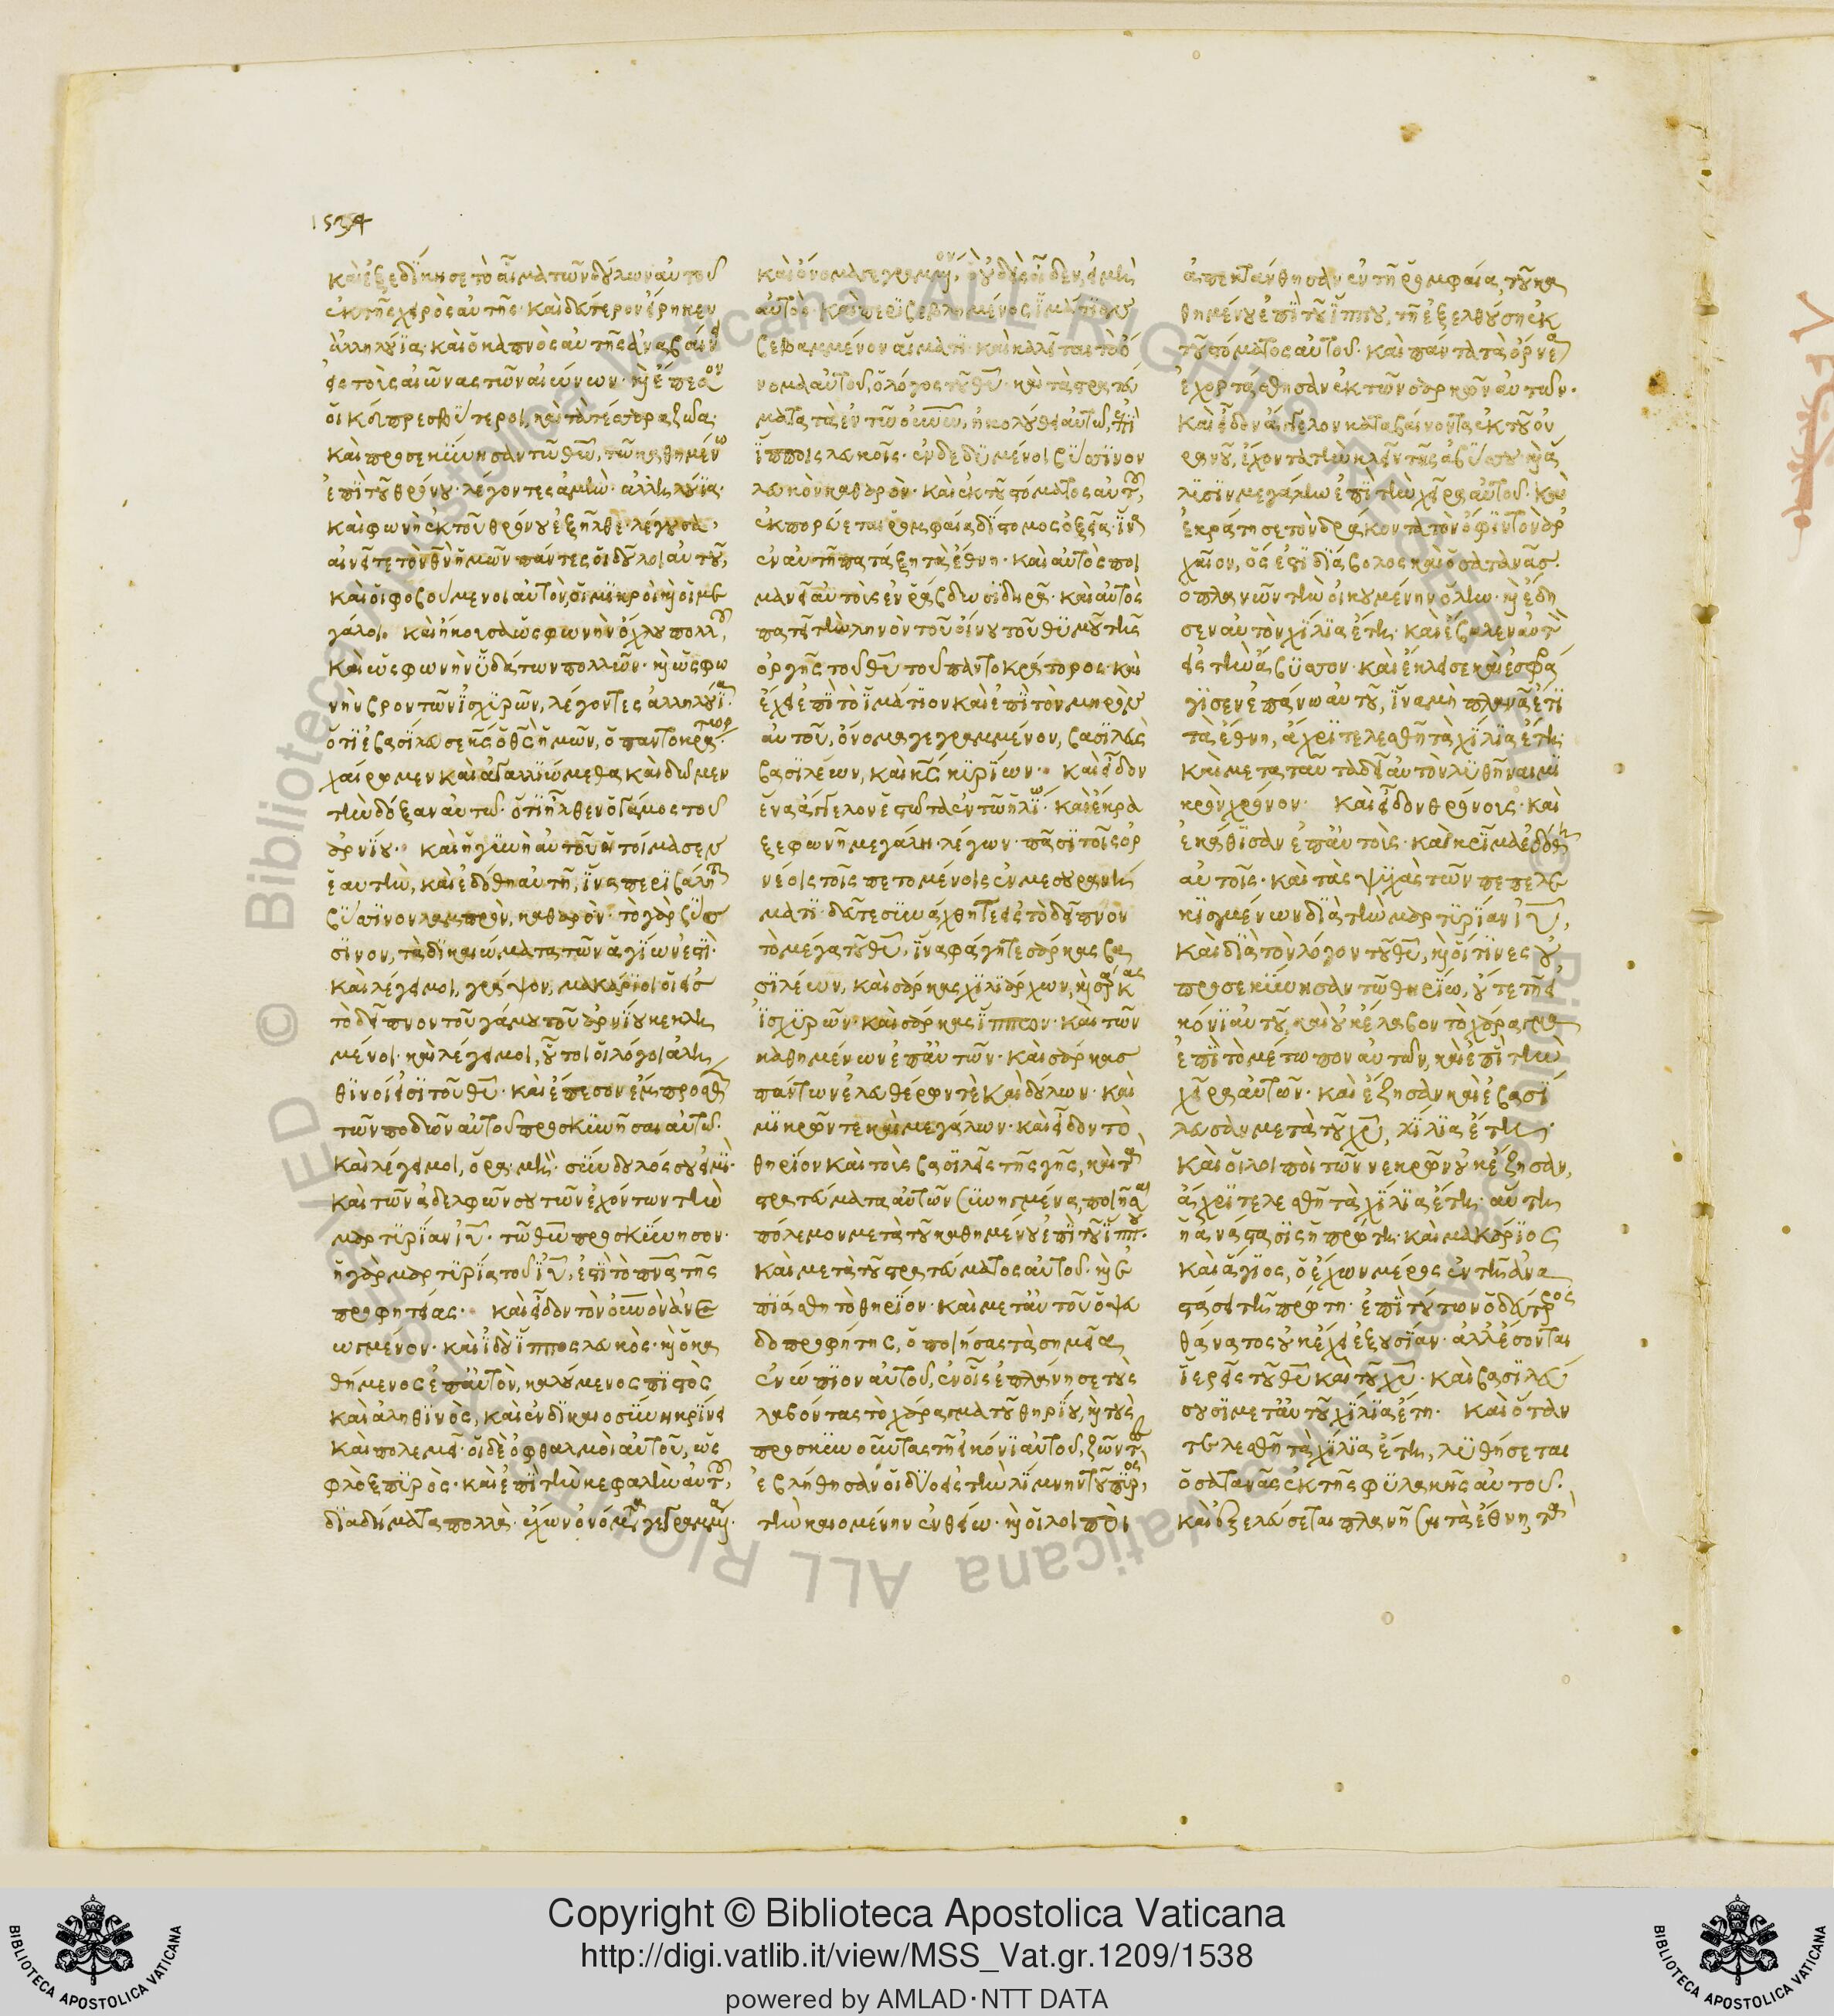 1534
καὶ ἐξεδίκησε τὸ αἷμα τῶν δούλων αὐτοῦ
ἐκ τῆς χειρὸς αὐτῆς· καὶ δεύτερον εἴρηκεν
ἀλληλούϊα· καὶ ὁ καπνὸς αὐτῆς ἀναβαίνει
εἰς τοὺς αἰῶνας τῶν αἰώνων· καὶ ἔπεσον
οἱ κδ πρεσβύτεροι, καὶ τὰ τέσσαρα ζῶα·
καὶ προσεκύνησαν τῷ θῶ, τῷ καθημένω
ἐπὶ τοῦ θρόνου· λέγοντες ἀμήν· ἀλληλούϊα·
καὶ φωνὴ ἐκ τοῦ θρόνου ἐξῆλθε λέγουσα,
αἰνεῖτε τὸν θν ἡμῶν πάντες οἱ δοῦλοι αὐτοῦ,
καὶ οἱ φοβούμενοι αὐτὸν, οἱ μικροὶ καὶ οἱ με
γάλοι. καὶ ἤκουσα ὡς φωνὴν ὄχλου πολλοῦ,
καὶ ὡς φωνὴν ὑδάτων πολλῶν· καὶ ὡς φω
νὴν βροντῶν ἰσχυρῶν, λέγοντες ἀλληλούϊα·
ὅτι ἐβασίλευσε κς ὁ θς ἡμῶν, ὁ παντοκράτωρ·
χαίρωμεν καὶ ἀγαλλιώμεθα καὶ δῶμεν
τὴν δόξαν αὐτῶ· ὅτι ἦλθεν ὁ γάμος τοῦ
ἀρνίου· καὶ ἡ γυνὴ αὐτοῦ ἡτοίμασεν
ἑαυτὴν, καὶ ἐδόθη αὐτῇ, ἵνα περιβάληται
βύσσινον λαμπρὸν, καθαρὸν· τὸ γὰρ βύσ
σινον, τὰ δικαιώματα τῶν ἁγίων ἐστὶ·
καὶ λέγει μοι, γράψον, μακάριοι οἱ εἰς
τὸ δεῖπνον τοῦ γάμου τοῦ ἀρνίου κεκλη
μένοι· καὶ λέγει μοι, οὗτοι οἱ λόγοι ἀλη
θινοί εἰσι τοῦ θυ· καὶ ἔπεσον ἔμπροσθεν
τῶν ποδῶν αὐτοῦ προσκυνῆσαι αὐτῶ·
καὶ λέγει μοι, ὅρα μή· σύνδουλός σου εἰμὶ·
καὶ τῶν ἀδελφῶν σου τῶν ἐχόντων τὴν
μαρτυρίαν ιυ· τῷ θω προσκύνησον·
ἡ γὰρ μαρτυρία τοῦ ιυ, ἐστὶ τὸ πνα τῆς
προφητείας· καὶ εἶδον τὸν οὐνὸν ἀνε
ωγμένον· καὶ ἰδοὺ ἵππος λευκός· καὶ ὁ κα
θήμενος ἐπ' αὐτὸν, καλούμενος πιστὸς
καὶ ἀληθινὸς, καὶ ἐν δικαιοσύνη κρίνει
καὶ πολεμεῖ· οἱ δὲ ὀφθαλμοὶ αὐτοῦ, ὡς
φλὸξ πυρὸς· καὶ ἐπὶ τὴν κεφαλὴν αὐτοῦ,
διαδήματα πολλὰ· ἔχων ὀνόματα γεγραμμένα·
καὶ ὄνομα γεγραμμένον, ὃ οὐδεὶς οἶδεν, εἰ μὴ
αὐτὸς· καὶ περιβεβλημένος ἱμάτιον
βεβαμμένον αἵματι· καὶ καλεῖται τὸ ὄ
νομα αὐτοῦ, ὁ λόγος τοῦ θυ· καὶ τὰ στρατεύ
ματα τὰ ἐν τῷ οὐνῶ, ἠκολούθει αὐτῶ, ἐπὶ
ἵπποις λευκοῖς· ἐνδεδυμένοι βύσσινον
λευκὸν καθαρὸν· καὶ ἐκ τοῦ στόματος αὐτοῦ,
ἐκπορεύεται ῥομφαία δίστομος ὀξεῖα· ἵνα
ἐν αὐτῇ πατάξη τὰ ἔθνη· καὶ αὐτὸς ποι
μανεῖ αὐτοὺς ἐν ῥάβδω σιδηρᾶ· καὶ αὐτὸς
πατεῖ τὴν ληνὸν τοῦ οἴνου τοῦ θυμοῦ τῆς
ὀργῆς τοῦ θυ τοῦ παντοκράτορος· καὶ
ἔχει ἐπὶ τὸ ἱμάτιον καὶ ἐπὶ τὸν μηρὸν
αὐτοῦ, ὄνομα γεγραμμένον, βασιλεὺς
βασιλέων, καὶ κς κυρίων· καὶ εἶδον
ἕνα ἄγγελον ἑστῶτα ἐν τῷ ἡλίω· καὶ ἔκρα
ξε φωνῇ μεγάλη λέγων· πᾶσι τοῖς ὀρ
νέοις τοῖς πετομένοις ἐν μεσουρανή
ματι· δεῦτε συνάχθητε εἰς τὸ δεῖπνον
τὸ μέγα τοῦ θυ, ἵνα φάγητε σάρκας βα
σιλέων, καὶ σάρκας χιλιάρχων, καὶ σάρκας
ἰσχυρῶν· καὶ σάρκας ἵππων· καὶ τῶν
καθημένων ἐπ' αὐτῶν· καὶ σάρκας
πάντων ἐλευθέρων τὲ καὶ δούλων· καὶ
μικρῶν τε καὶ μεγάλων· καὶ εἶδον τὸ
θηρίον καὶ τοὺς βασιλεῖς τῆς γῆς, καὶ τὰ
στρατεύματα αὐτῶν συνηγμένα, ποιῆσαι
πόλεμον μετὰ τοῦ καθημένου ἐπὶ τοῦ ἵππου·
καὶ μετὰ τοῦ στρατεύματος αὐτοῦ· καὶ ἐ
πιάσθη τὸ θηρίον· καὶ μετ' αὐτοῦ ὁ ψευ
δοπροφήτης, ὁ ποιήσας τὰ σημεῖα
ἐνώπιον αὐτοῦ, ἐν οἷς ἐπλάνησε τοὺς
λαβόντας τὸ χάραγμα τοῦ θηρίου, καὶ τοὺς
προσκυνοῦντας τῇ εἰκόνι αὐτοῦ, ζῶντες
ἐβλήθησαν οἱ δύο εἰς τὴν λίμνην τοῦ πυρὸς,
τὴν καιομένην ἐν θείω· καὶ οἱ λοιποὶ
ἀπεκτάνθησαν ἐν τῇ ῥομφαία, τοῦ κα
θημένου ἐπὶ τοῦ ἵππου, τῇ ἐξελθούση ἐκ
τοῦ στόματος αὐτοῦ· καὶ πάντα τὰ ὄρνεα
ἐχορτάσθησαν ἐκ τῶν σαρκῶν αὐτῶν·
καὶ εἶδον ἄγγελον καταβαίνοντα ἐκ τοῦ οὐ
ρανοῦ, ἔχοντα τὴν κλεῖν τῆς ἀβύσσου καὶ ἅ
λυσιν μεγάλην ἐπὶ τὴν χεῖρα αὐτοῦ· καὶ
ἐκράτησε τὸν δράκοντα τὸν ὄφιν τὸν ἀρ
χαῖον, ὅς ἐστι διάβολος καὶ ὁ σατανᾶς·
ὁ πλανῶν τὴν οἰκουμένην ὅλην· καὶ ἔδη
σεν αὐτὸν χίλια ἔτη· καὶ ἔβαλεν αὐτὸν
εἰς τὴν ἄβυσσον· καὶ ἔκλεισε καὶ ἐσφρά
γισεν ἐπάνω αὐτοῦ, ἵνα μὴ πλανᾶ ἔτι
τὰ ἔθνη, ἄχρι τελεσθῇ τὰ χίλια ἔτη·
καὶ μετὰ ταῦτα δεῖ αὐτὸν λυθῆναι μι
κρὸν χρόνον· καὶ εἶδον θρόνους· καὶ
ἐκάθισαν ἐπ' αὐτοὺς· καὶ κρίμα ἐδόθη
αὐτοῖς· καὶ τὰς ψυχὰς τῶν πεπελε
κισμένων διὰ τὴν μαρτυρίαν ιυ,
καὶ διὰ τὸν λόγον τοῦ θυ, καὶ οἵτινες οὐ
προσεκύνησαν τῷ θηρίω, οὔτε τῇ εἰ
κόνι αὐτοῦ, καὶ οὐκ ἔλαβον τὸ χάραγμα
ἐπὶ τὸ μέτωπον αὐτῶν, καὶ ἐπὶ τὴν
χεῖρα αὐτῶν· καὶ ἔζησαν καὶ ἐβασί
λευσαν μετὰ τοῦ χυ, χίλια ἔτη·
καὶ οἱ λοιποὶ τῶν νεκρῶν οὐκ ἔζησαν,
ἄχρι τελεσθῇ τὰ χίλια ἔτη· αὕτη
ἡ ἀνάστασις ἡ πρώτη· καὶ μακάριος
καὶ ἅγιος, ὁ ἔχων μέρος ἐν τῇ ἀνα
στάσει τῇ πρώτη· ἐπὶ τούτων ὁ δεύτερος
θάνατος οὐκ ἔχει ἐξουσίαν· ἀλλ' ἔσονται
ἱερεῖς τοῦ θυ καὶ τοῦ χυ· καὶ βασιλεύ
σουσι μετ' αὐτοῦ χίλια ἔτη· καὶ ὅταν
τελεσθῇ τὰ χίλια ἔτη, λυθήσεται
ὁ σατανᾶς ἐκ τῆς φυλακῆς αὐτοῦ·
καὶ ἐξελεύσεται πλανῆσαι τὰ ἔθνη τὰ
© Biblioteca Apostolica Vaticana ALL RIGHTS RESERVED
Copyright © Biblioteca Apostolica Vaticana
http://digi.vatlib.it/view/MSS_Vat.gr.1209/1538
powered by AMLAD·NTT DATA
BIBLIOTECA APOSTOLICA VATICANA
BIBLIOTECA APOSTOLICA VATICANA